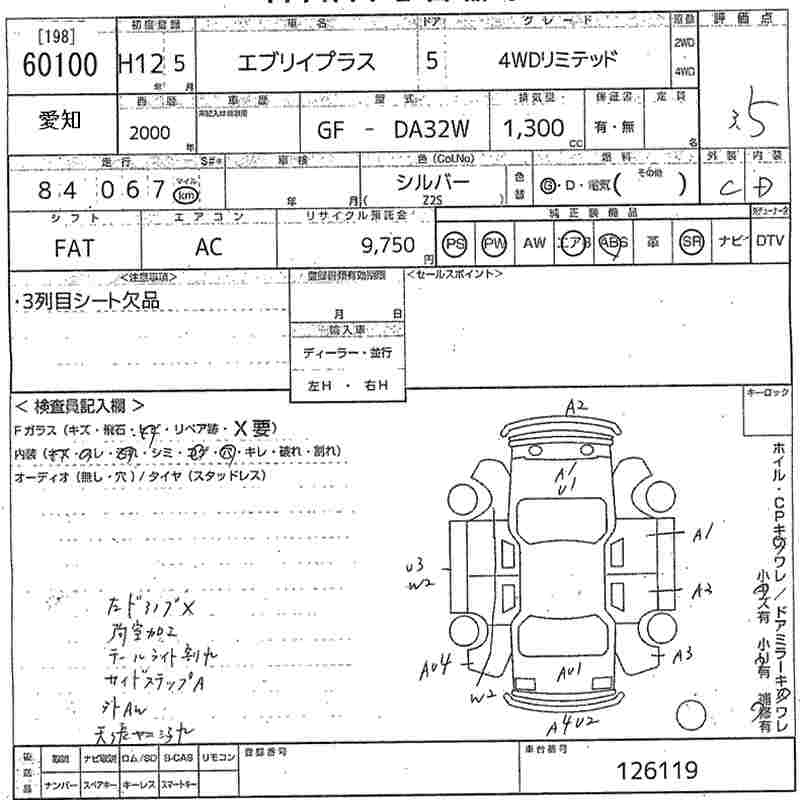 [198] 初度登録 車名 ドア グレード 駆動 評価点
60100 H12 5 エブリイプラス 5 4WDリミテッド 2WD
年 月 4WD
愛知 西暦 車歴 型式 排気量 保証書 定員 3.5
2000年 未記入は自家用 GF - DA32W 1,300cc 有・無 名
走行 S#* 車検 色(Col.No) 燃料 外装 内装
84 067 マイル km 年 月 シルバー 色替 G・D・電気( その他 ) C D
( Z2S )
シフト エアコン リサイクル預託金 純正装備品
FAT AC 9,750円 PS PW AW エアB ABS 革 SR ナビ DTV
<注意事項> 登録書類有効期限 <セールスポイント>
・3列目シート欠品 月 日
輸入車
ディーラー・並行
左H ・ 右H
< 検査員記入欄 > キーロック
Fガラス(キズ・飛石・ヒビ・リペア跡・X要)
内装(キズ・ヨレ・シミ・コゲ・穴・キレ・破れ・割れ)
オーディオ(無し・穴)/タイヤ(スタッドレス)
A2
A1
U1
A1
U3
W2
A2
AU4
A3
W2
AU1
A4U2
ホイル・CPキズワレ/ドアミラーキズワレ
小キズ有 補修有
テールライト割れ
サイドステップA
外AW
ナンバー スペアキー キーレス スマートキー
ロム/SD B-CAS リモコン 登録番号 車台番号
126119